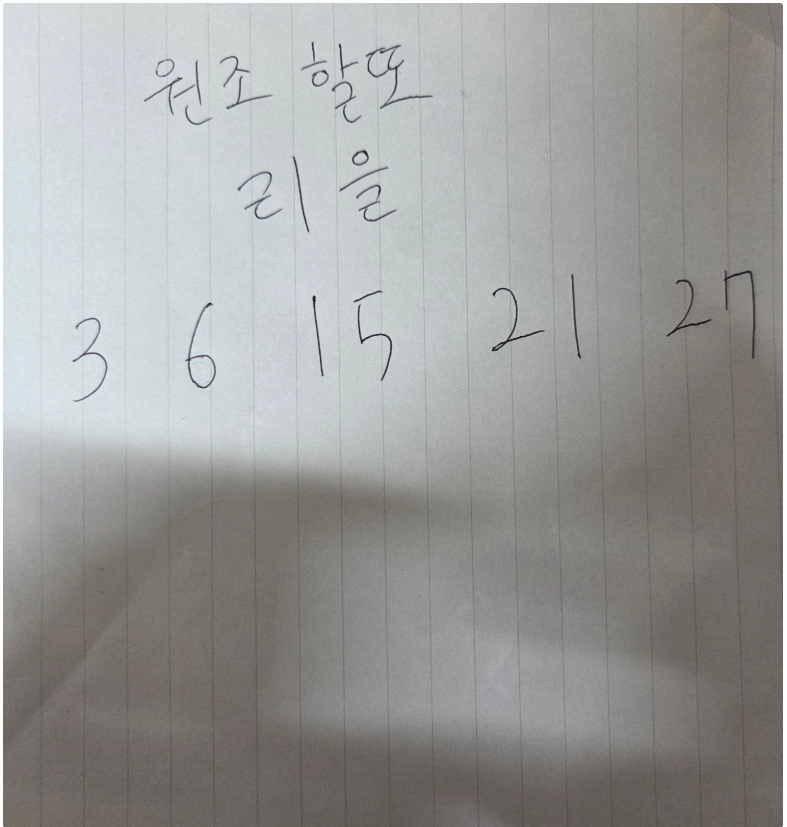 원조 할또
리을
3 6 15 21 27